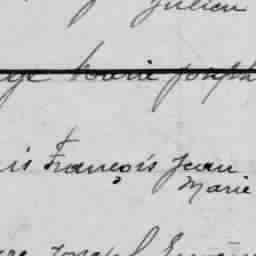 Julien
Marie joseph
is François Jean
Marie
joseph